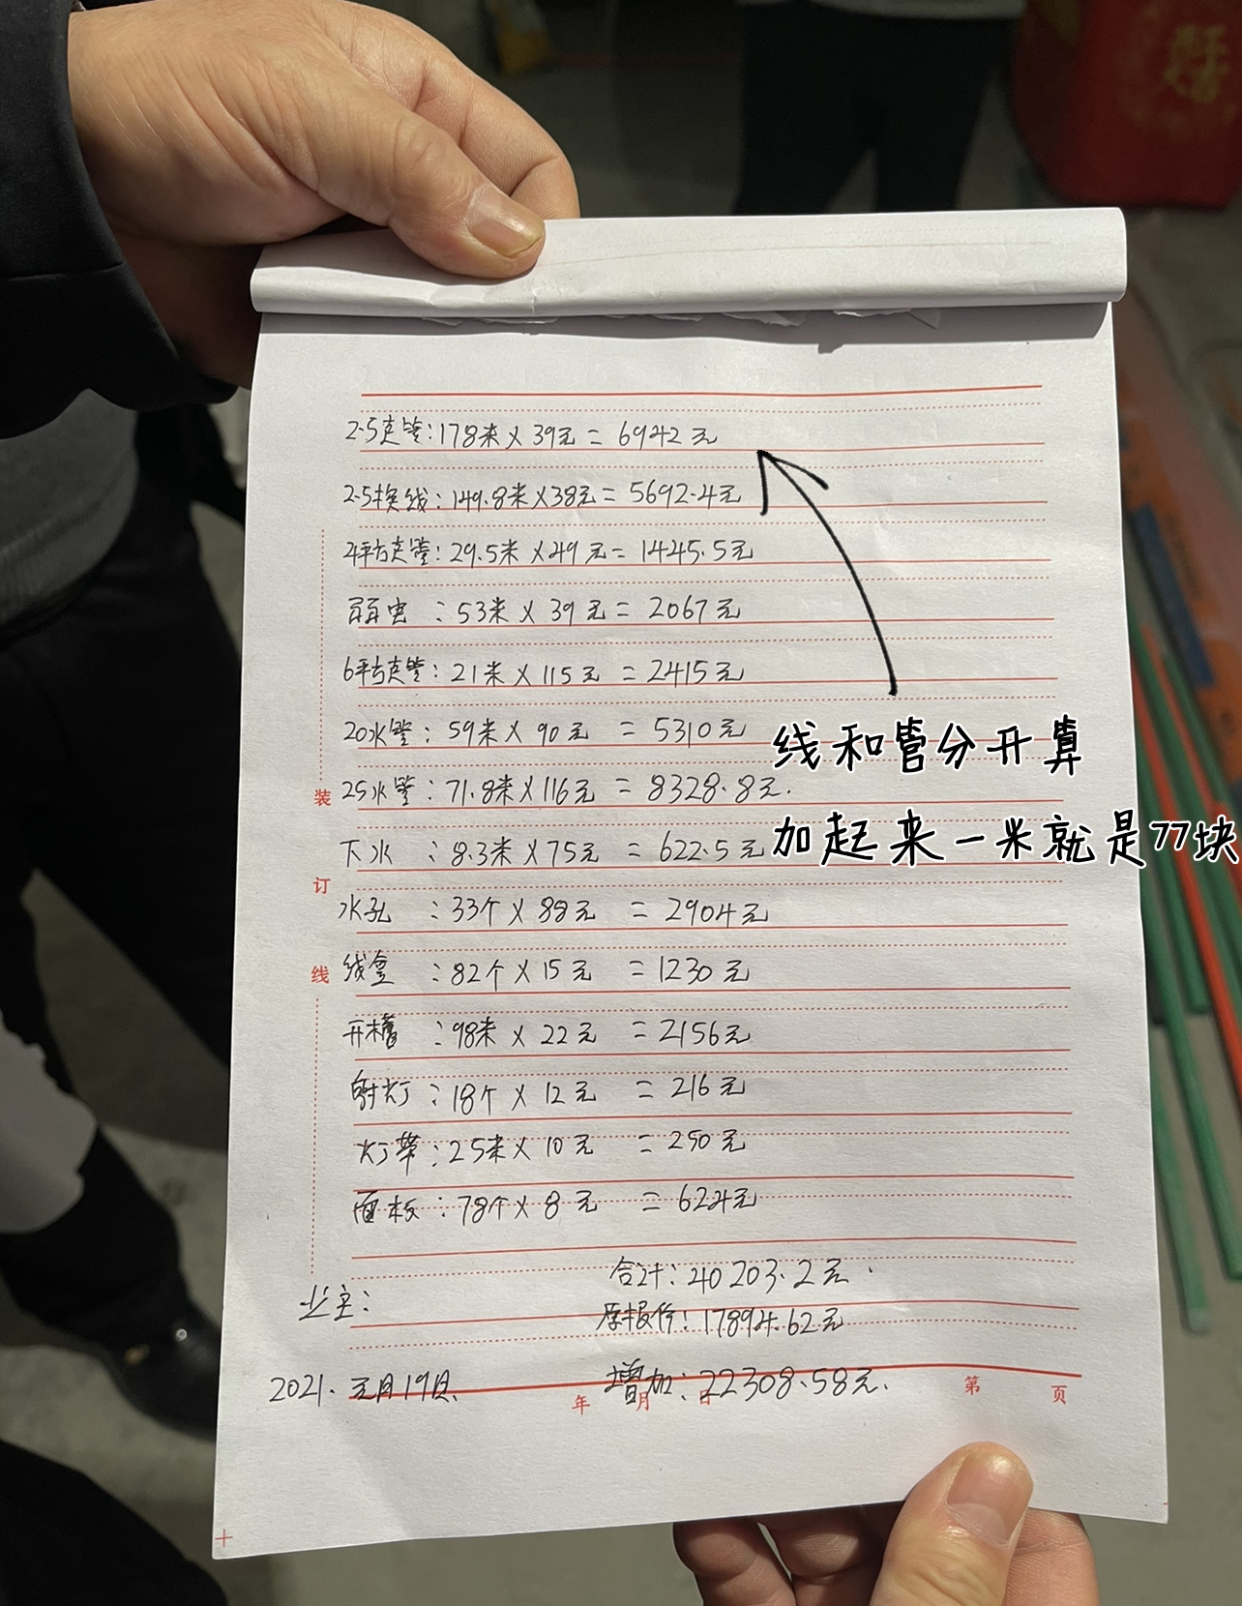 2.5克管:178米×39元=6942元
2.5换线:149.8米×38元=5692.4元
4平方克管:29.5米×49元=1445.5元
弱电:53米×39元=2067元
6平方克管:21米×115元=2415元
20水管:59米×90元=5310元
线和管分开算
25水管:71.8米×116元=8328.8元.
加起来一米就是77块
下水:8.3米×75元=622.5元
水孔:33个×88元=2904元
线盒:82个×15元=1230元
开槽:98米×22元=2156元
射灯:18个×12元=216元
灯带:25米×10元=250元
面板:78个×8元=624元
装订线
合计:40203.2元.
业主:
原报价:17894.62元
2021.元月19日.
增加:22308.58元.
年 月 日 第 页